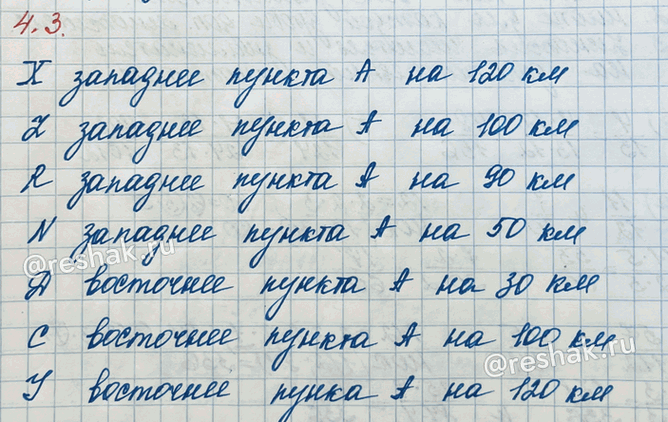 4.3.
X западнее пункта A на 120 км
Z западнее пункта A на 100 км
R западнее пункта A на 90 км
N западнее пункта A на 50 км
@reshak.ru
Д восточнее пункта A на 30 км
C восточнее пункта A на 100 км
@reshak.ru
У восточнее пунка A на 120 км